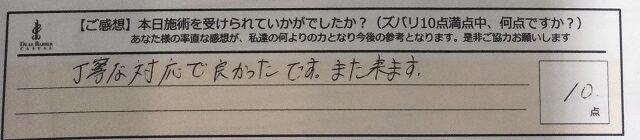 DEAR BARBER
CASUAL
【ご感想】本日施術を受けられていかがでしたか？（ズバリ10点満点中、何点ですか？）
あなた様の率直な感想が、私達の何よりの力となり今後の参考となります。是非ご協力お願いします
丁寧な対応で良かったです。また来ます。
10.
点